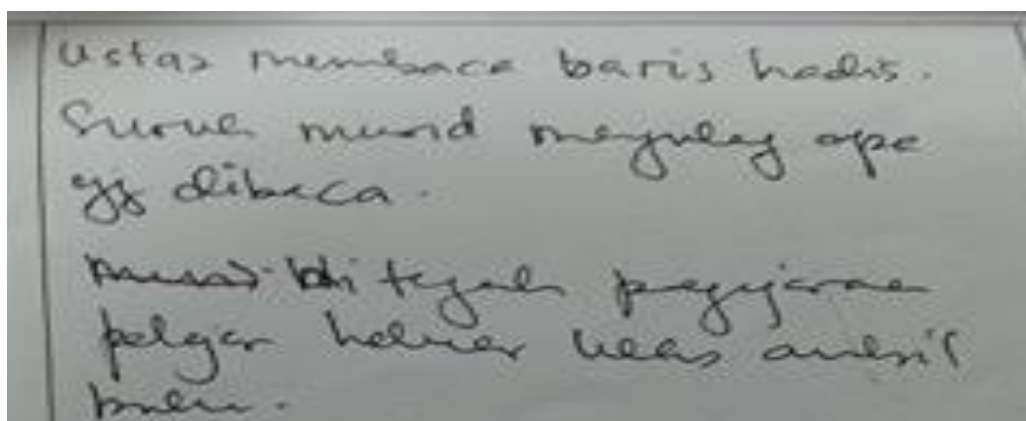 Ustaz membaca baris hadis.
Suruh murid mengulang apa
yg dibaca.
di tengah pengajaran
pelajar keluar kelas ambil
buku.